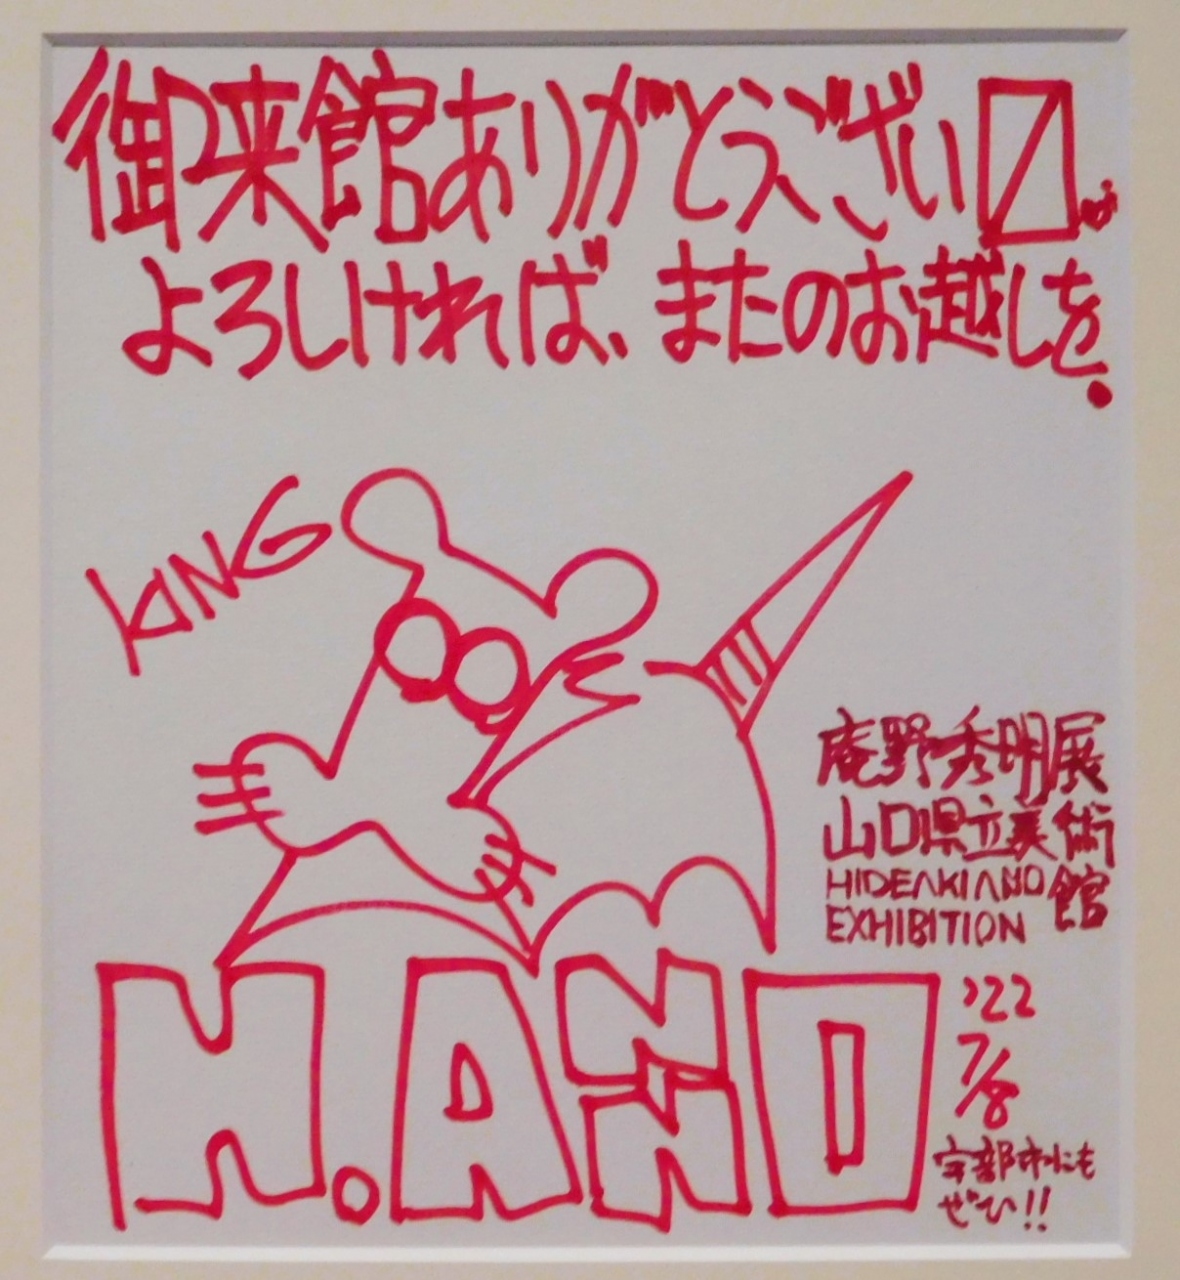 御来館ありがとうござい〼。
よろしければ、またのお越しを。
KING
庵野秀明展
山口県立美術館
HIDEAKI ANO
EXHIBITION
H.ANNO
'22
7/8
宇部市にも
ぜひ!!